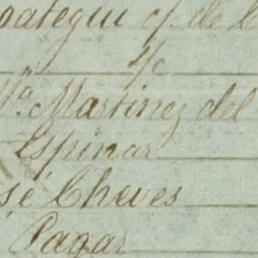 oategui y de l
Yc
Ma. Martinez del
Espinar
sé Cheves
Pagar